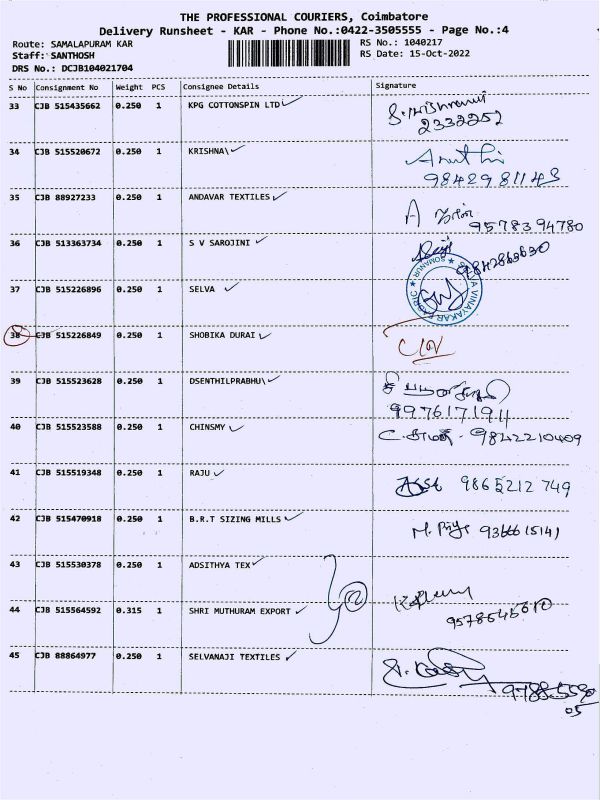 THE PROFESSIONAL COURIERS, Coimbatore
Delivery Runsheet - KAR - Phone No.:0422-3505555 - Page No.:4
Route: SAMALAPURAM KAR RS No.: 1040217
Staff: SANTHOSH RS Date: 15-Oct-2022
DRS No.: DCJB104021704
S No Consignment No Weight PCS Consignee Details Signature
33 CJB 515435662 0.250 1 KPG COTTONSPIN LTD
2332252
34 CJB 515520672 0.250 1 KRISHNA\
9842981143
35 CJB 88927233 0.250 1 ANDAVAR TEXTILES A
9578394780
36 CJB 513363734 0.250 1 S V SAROJINI
37 CJB 515226896 0.250 1 SELVA
SELVA VINAYAKAR FABRIC ★ SOMANUR ★
38 CJB 515226849 0.250 1 SHOBIKA DURAI
39 CJB 515523628 0.250 1 DSENTHILPRABHU\
9976171911
40 CJB 515523588 0.250 1 CHINSMY 9842210409
41 CJB 515519348 0.250 1 RAJU 9865212749
42 CJB 515470918 0.250 1 B.R.T SIZING MILLS M. Priya 9366615141
43 CJB 515530378 0.250 1 ADSITHYA TEX
44 CJB 515564592 0.315 1 SHRI MUTHURAM EXPORT
45 CJB 88864977 0.250 1 SELVANAJI TEXTILES
05